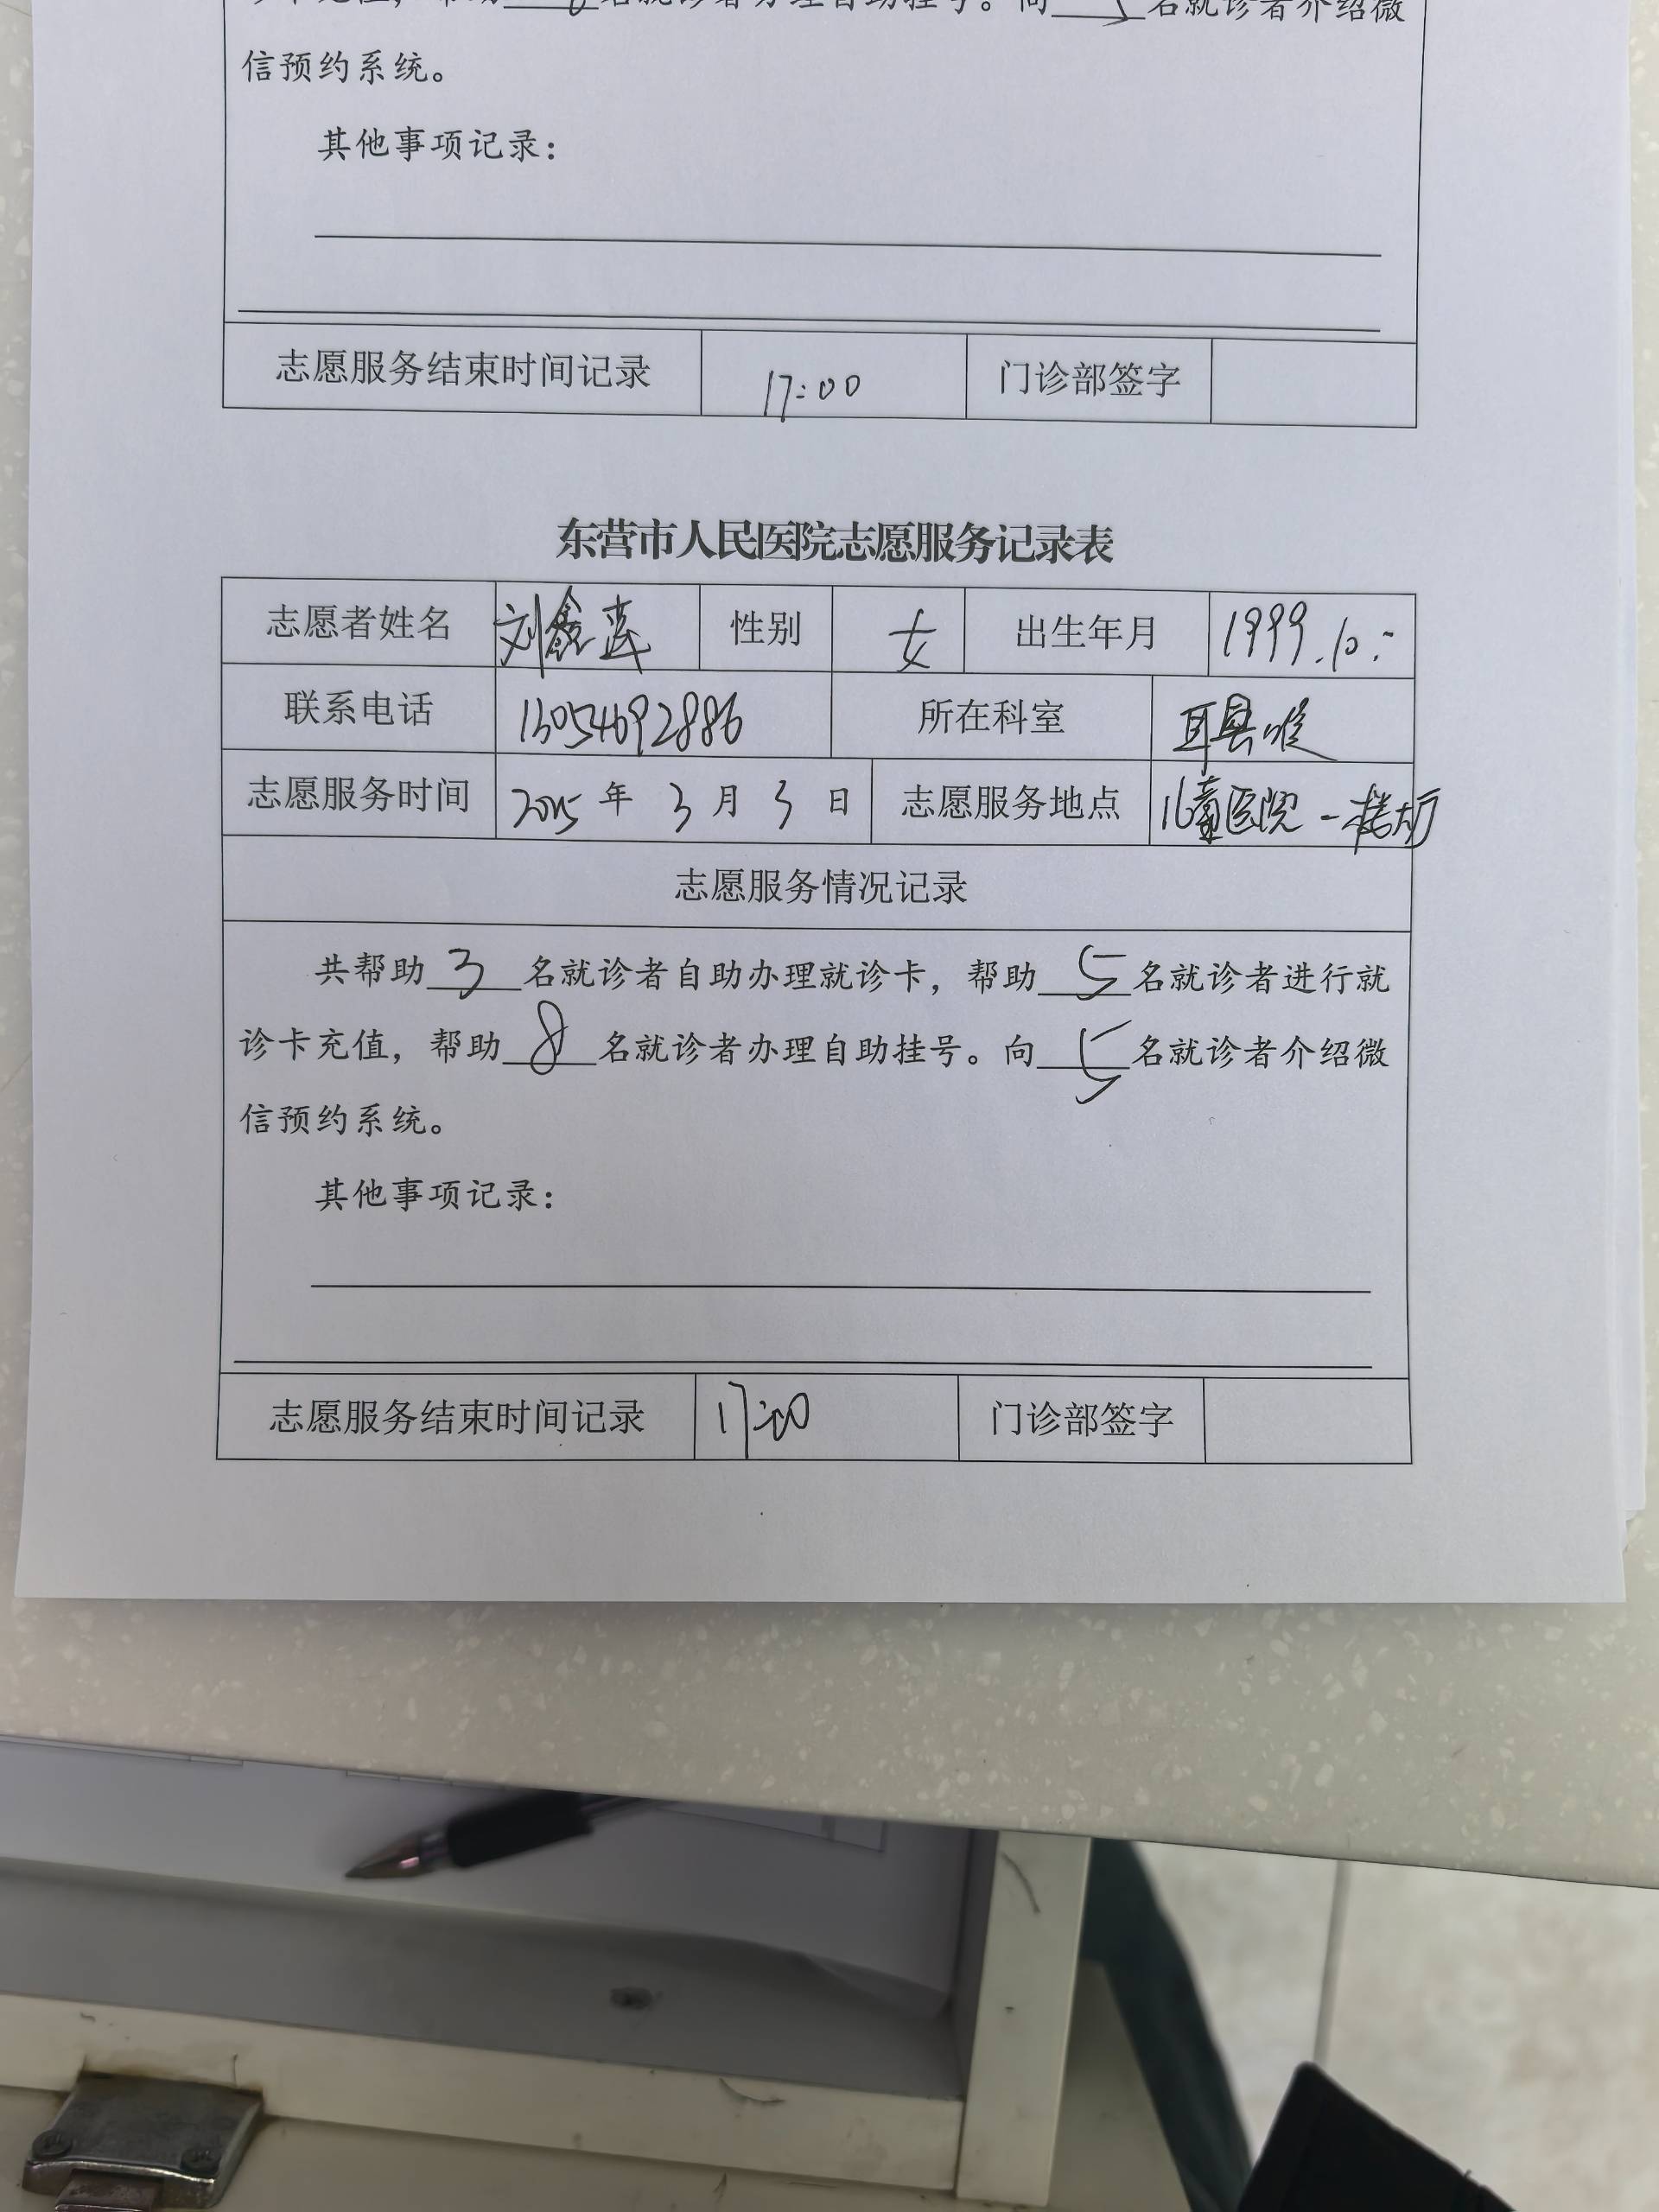 名就诊者办理自助挂号。向 5 名就诊者介绍微
信预约系统。
其他事项记录：
志愿服务结束时间记录 17:00 门诊部签字
东营市人民医院志愿服务记录表
志愿者姓名 刘鑫 性别 女 出生年月 1999.10.
联系电话 13054692886 所在科室 耳鼻喉
志愿服务时间 2025 年 3 月 3 日 志愿服务地点 儿童医院一楼大厅
志愿服务情况记录
共帮助 3 名就诊者自助办理就诊卡，帮助 5 名就诊者进行就
诊卡充值，帮助 8 名就诊者办理自助挂号。向 5 名就诊者介绍微
信预约系统。
其他事项记录：
志愿服务结束时间记录 17:00 门诊部签字